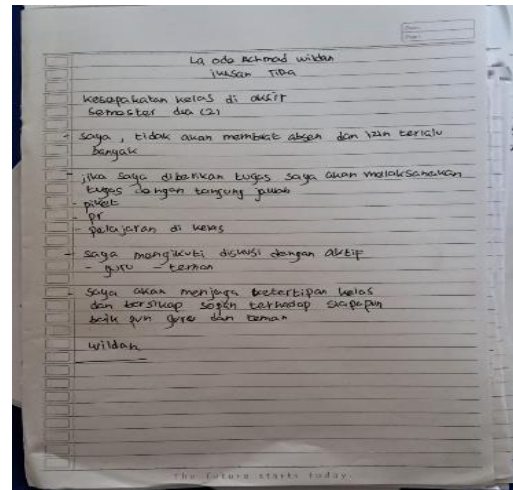 La ode Achmad wildan
jurusan TIPA
kesepakatan kelas di akhir
Semester dua (2)
- saya, tidak akan membuat absen dan izin terlalu
banyak
- jika saya diberikan tugas saya akan melaksanakan
tugas dengan tanjung jawab
- piket
- pr
- pelajaran di kelas
- saya mengikuti diskusi dengan aktif
- guru - teman
- saya akan menjaga ketertipan kelas
dan bersikap sopan terhadap siapapun
baik pun guru dan teman
wildan
The future starts today.